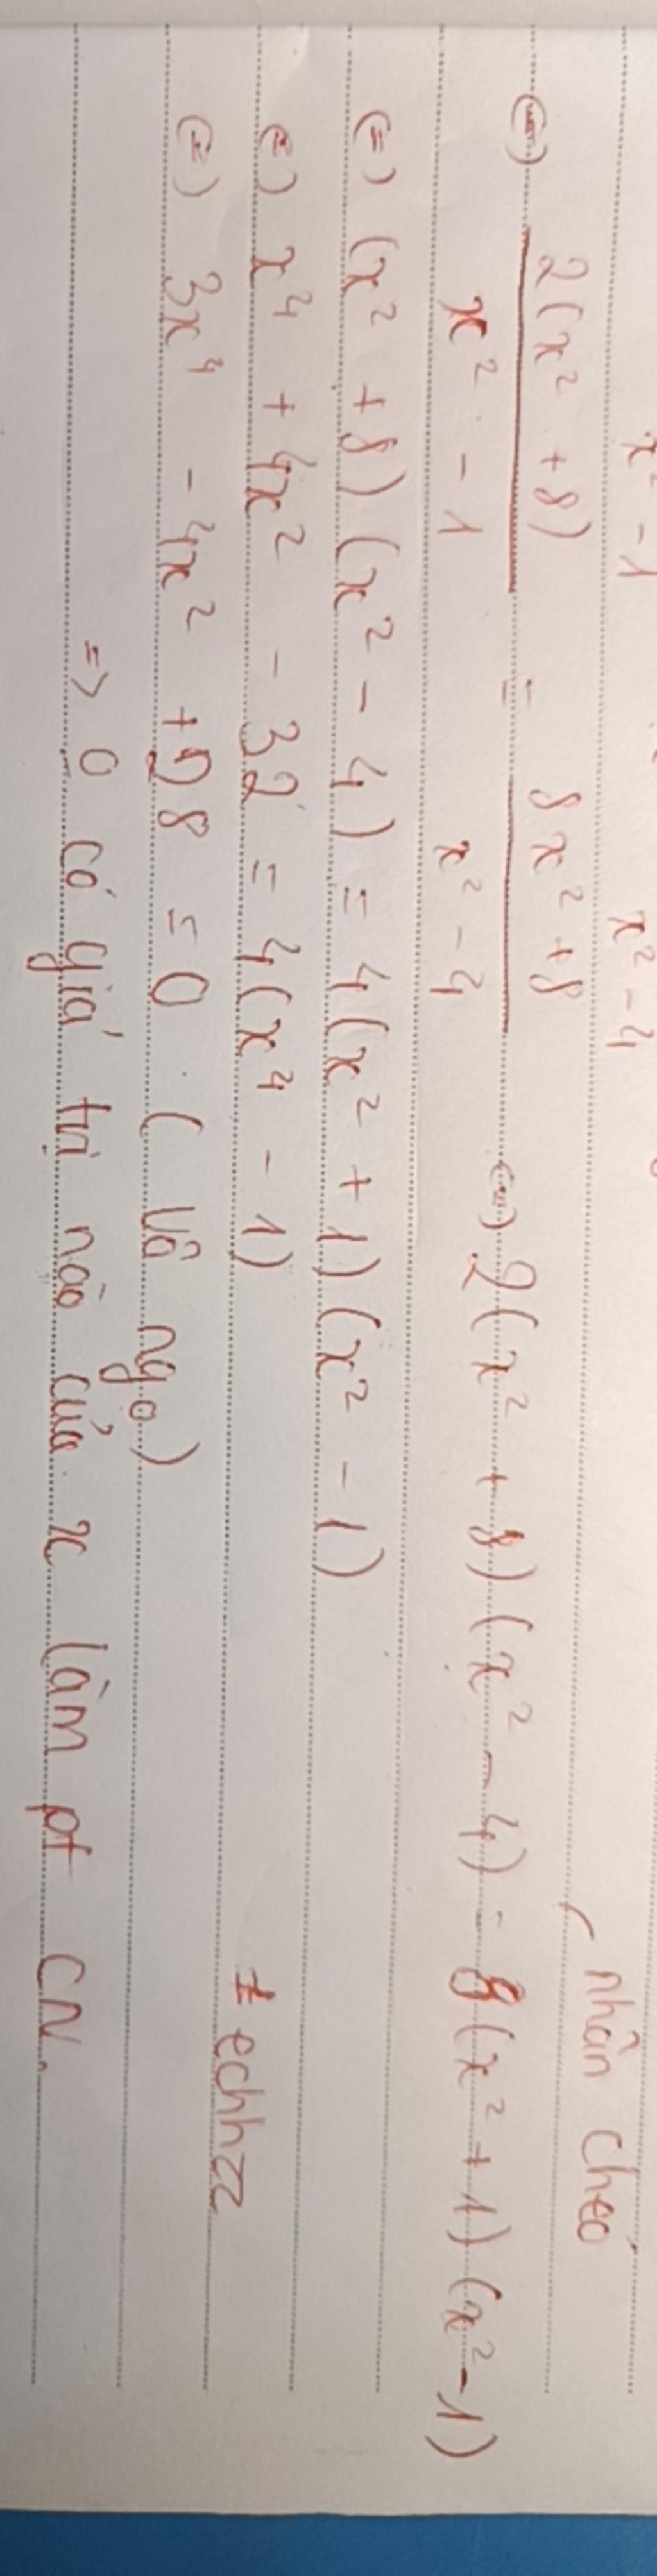 x² - 1 x² - 4
(=) 2(x² + 8) / x² - 1 = 8x² + 8 / x² - 4 (=) 2(x² + 8)(x² - 4) = 8(x² + 1)(x² - 1)
nhân chéo
(=) (x² + 8)(x² - 4) = 4(x² + 1)(x² - 1)
(=) x⁴ + 4x² - 32 = 4(x⁴ - 1)
(=) 3x⁴ - 4x² + 28 = 0 (Vô ngo)
‡ echhzz
=> 0 có giá trị nào của x làm pt CN.